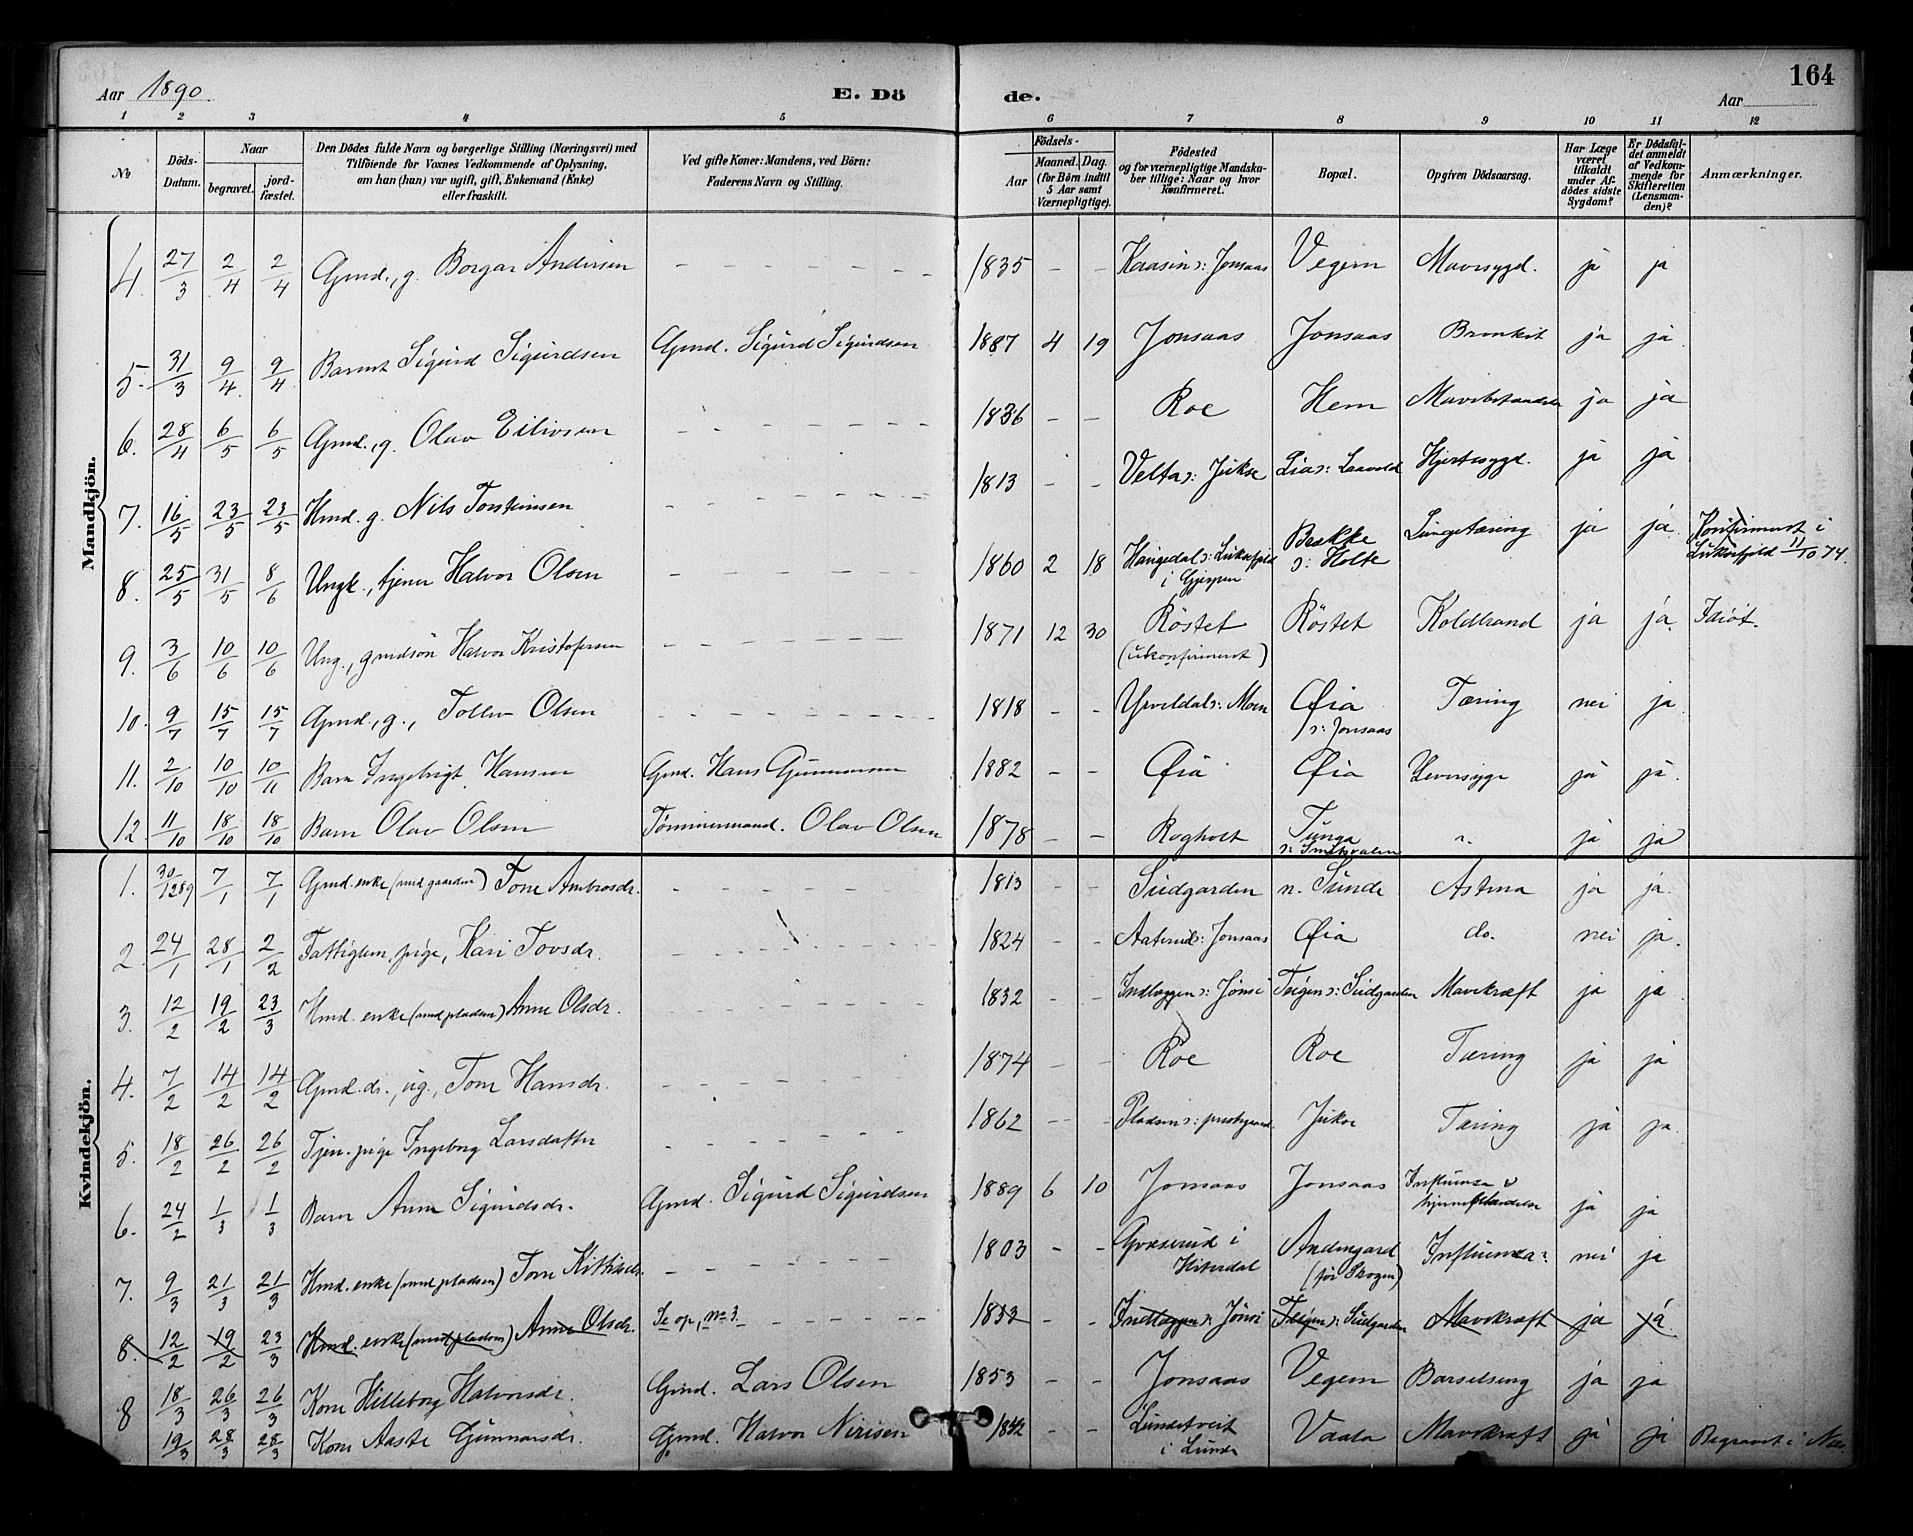 Aar 1890. E. Döde. Aar 164
1 2 3 4 5 6 7 8 9 10 11 12
№
Döds-Datum.
Naar
begravet.
jordfæstet.
Den Dödes fulde Navn og borgerlige Stilling (Næringsvei) med
Tilföiende for Voxnes Vedkommende af Oplysning,
om han (hun) var ugift, gift, Enkemand (Enke)
eller fraskilt.
Ved gifte Koner: Mandens, ved Börn:
Faderens Navn og Stilling.
Födsels-
Aar
Maaned. Dag.
(for Börn indtil
5 Aar samt
Værnepligtige).
Födested
og for værnepligtige Mandskaber tillige: Naar og hvor
Konfirmeret.
Bopæl.
Opgiven Dödsaarsag.
Har Læge
været
tilkaldt
under Afdödes sidste
Sygdom?
Er Dödsfaldet anmeldt
af Vedkommende for
Skifteretten
(Lensmanden)?
Anmærkninger.
Mandkjön.
4. 27/3 2/4 2/4 Gmd., g. Borgar Andersen - 1835 - - Kaasin ɔ: Jonsaas Vegem Mavesygd. ja ja
5. 31/3 9/4 9/4 Barnet Sigurd Sigurdsen Gmd. Sigurd Sigurdsen 1887 4 19 Jonsaas Jonsaas Bronkit ja ja
6. 28/4 6/5 6/5 Gmd., g. Olav Eilivsen - 1836 - - Roe Hem ja ja
7. 16/5 23/5 23/5 Hmd. g. Nils Torsteinsen - 1813 - - Velta ɔ: Jukse Lia ɔ: Laavold Hjertesygd. ja ja
8. 25/5 31/5 8/6 Ungk., tjener Halvor Olsen 1860 2 18 Haugedal ɔ: Luksefjeld i Gjerpen Brekke ɔ: Holte Lungetæring ja ja Konfirmeret i Luksefjeld 11/10 74.
9. 3/6 10/6 10/6 Ung., gmdsön Halvor Kristofersen - 1871 12 30 Röstet (ukonfirmeret) Röstet Koldbrand ja ja. Idiöt.
10. 9/7 15/7 15/7 Gmd., g., Tollev Olsen - 1818 - - ɔ: Moen Øia ɔ: Jonsaas Tæring nei ja
11. 2/10 10/10 10/11 Barn Ingebrigt Hansen Gmd. Hans Gunnarsen 1882 - - Øia Øia Leversyge ja ja.
12 11/10 18/10 18/10 Barn Olav Olsen Tömmermand. Olav Olsen 1878 - - Rogholt Tunga ɔ: ja ja
Kvindekjön.
1. 30/12 89 7/1 7/1 Gmd. enke (med gaarden) Tone Ambrosdr. - 1813 Sudgarden n. Sunde Astma ja ja.
2. 24/1 28/1 2/2 Fattiglem, pige, Kari Tovsdr. - 1824 - - Aaterud ɔ: Jonsaas Øia do. nei ja.
3. 12/2 19/2 23/3 Hmd. enke (med pladsen) Anne Olsdr. - 1832 - - Indlæggen ɔ: Jönsi Teigen ɔ: Sudgarden Mavekræft ja ja
4. 7/2 14/2 14/2 Gmd. dr., ug., Tone Hansdr. - 1874 - - Roe Roe Tæring ja ja
5. 18/2 26/2 26/2 Tjen. pige Ingeborg Larsdatter - 1862 - - Pladsen ɔ: prestegaard. Jukse Tæring ja ja.
6. 24/2 1/3 1/3 Barn Anne Sigurdsdr. Gmd. Sigurd Sigurdsen 1889 6 10 Jonsaas Jonsaas Influensa & ja ja
7. 9/3 21/3 21/3 Hmd. enke (med pladsen) Tone Kittilsdr. - 1803 - - i Hiterdal Andengard (för Skogen) Influensa: nei ja
8. 12/2 19/2 23/3 Hmd. enke (med pladsen) Anne Olsdr. Se op, no 3. - 1832 - - Indlæggen ɔ: Jönsi Teigen ɔ: Sudgarden Mavekræft ja ja
8 18/3 26/3 26/3 Kone Hilleborg Halvorsdr. Gmd. Lars Olsen 1853 - - Jonsaas Vegem Barselseng ja ja
19/3 28/3 28/3 Kone Aaste Gunnarsdr. Gmd. Halvor Nirisen 1842 - - Lundetveit i Lunde Vaala Mavekræft ja ja Begravet i